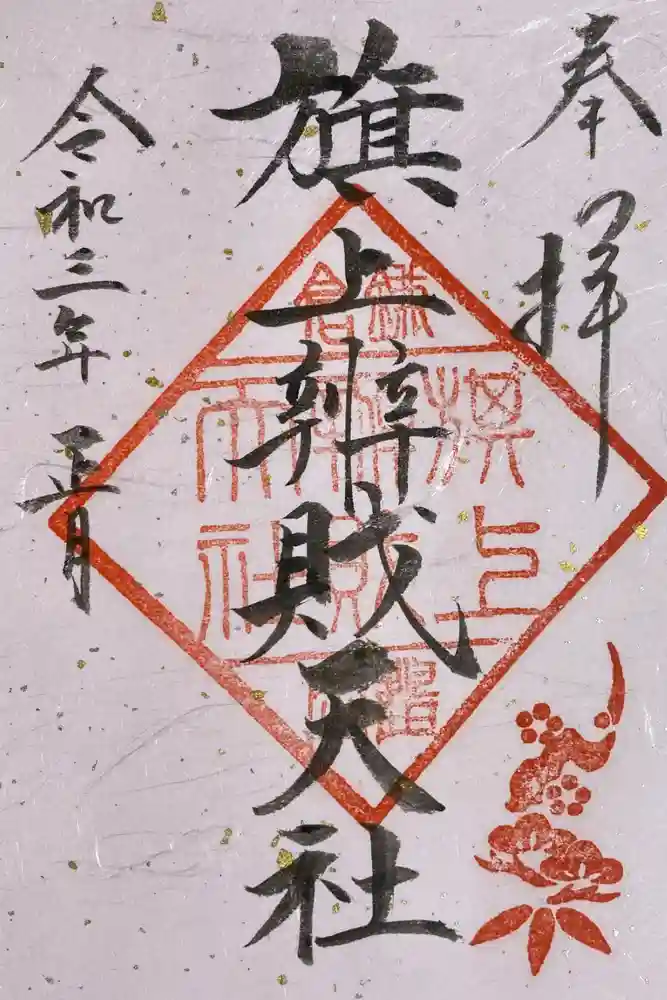 奉拝
旗上辨戝天社
令和三年 正月
鎌倉
旗上
辨財
天社